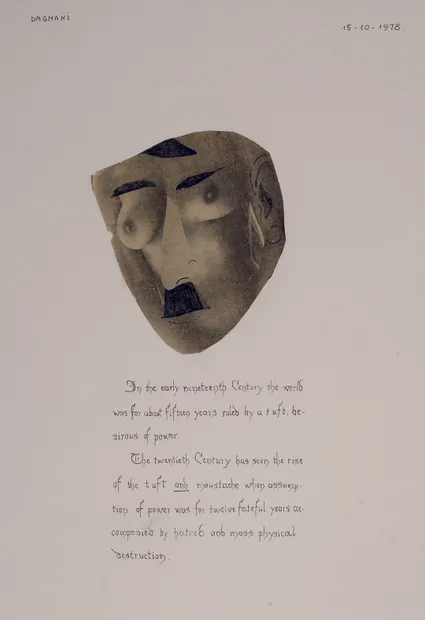 DAGHANI
15-10-1978.
In the early nineteenth Century the world
was for about fifteen years ruled by a tuft, de-
sirous of power.
The twentieth Century has seen the rise
of the tuft and moustache when assump-
tion of power was for twelve fateful years ac-
companied by hatred and mass physical
destruction.